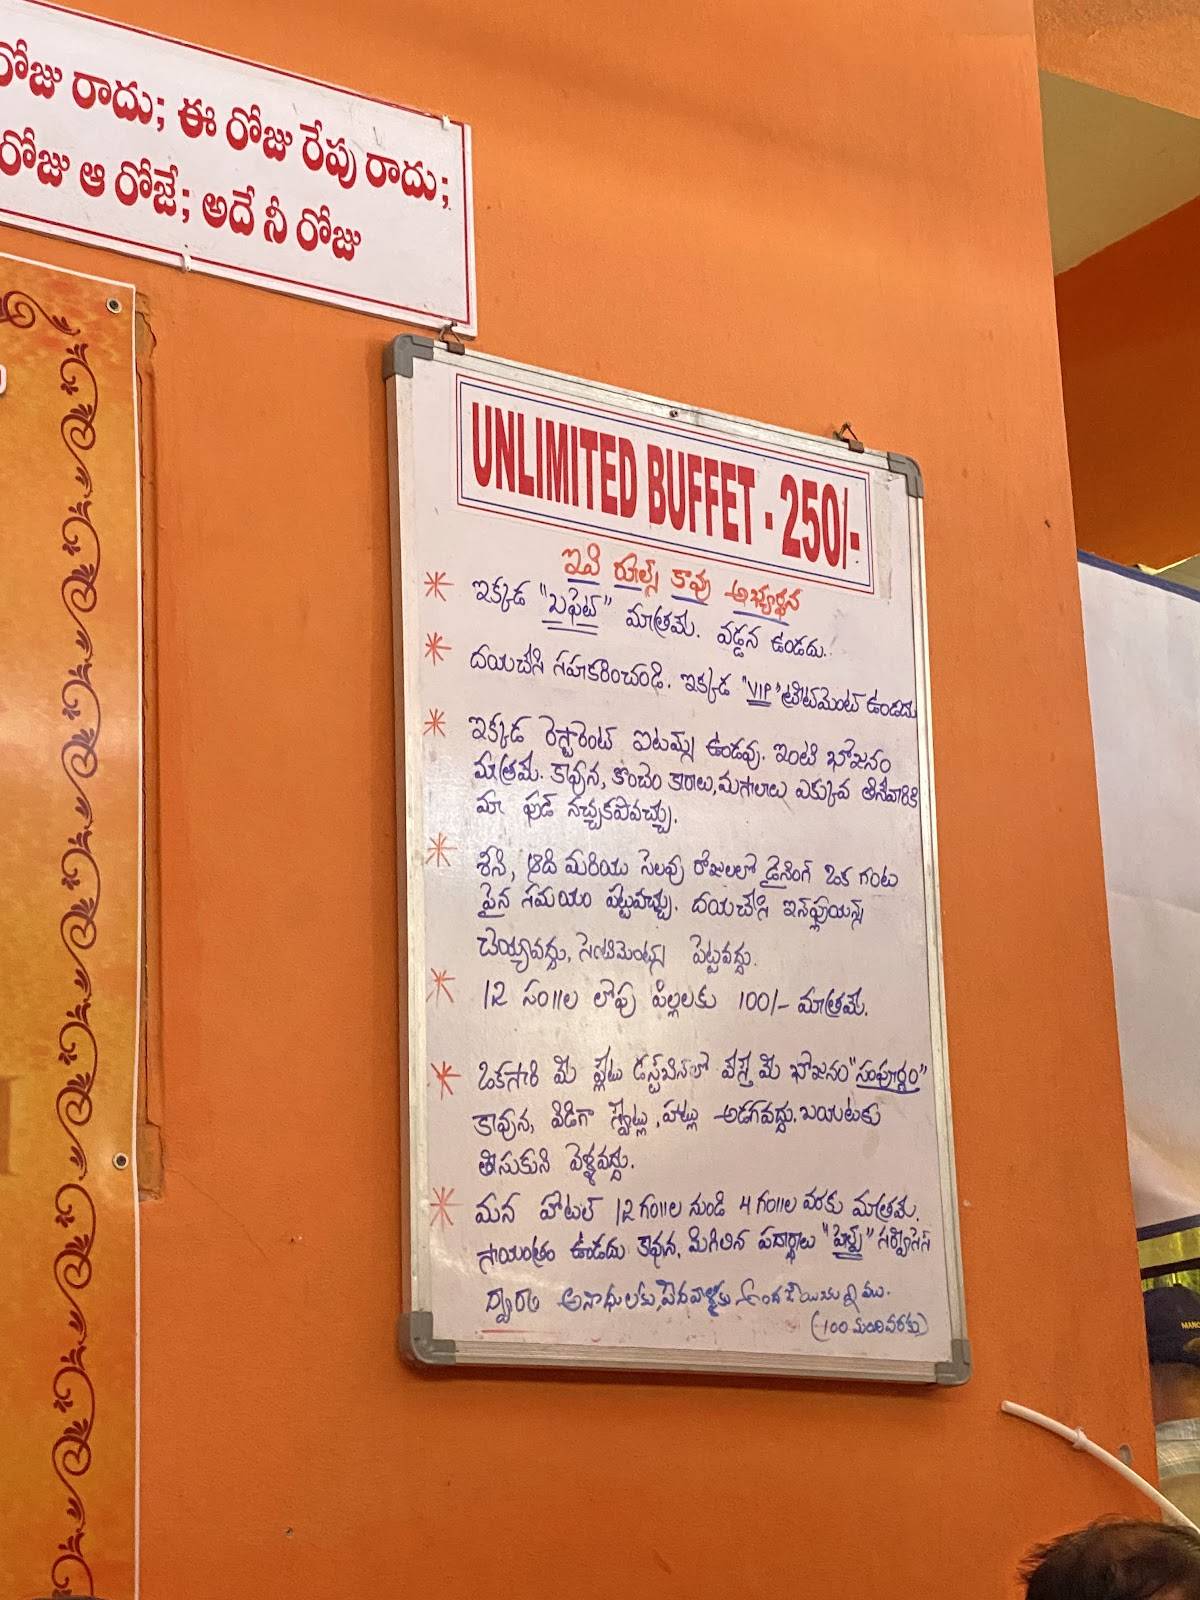 రోజు రాదు; ఈ రోజు రేపు రాదు;
రోజు ఆ రోజే; అదే నీ రోజు
UNLIMITED BUFFET - 250/-
ఇవి రూల్స్ కావు అభ్యర్థన
* ఇక్కడ "బఫెట్" మాత్రమే. వడ్డన ఉండదు.
* దయచేసి సహకరించండి. ఇక్కడ "VIP" ట్రీట్‌మెంట్ ఉండదు
* ఇక్కడ రెస్టారెంట్ ఐటమ్స్ ఉండవు. ఇంటి భోజనం
మాత్రమే. కావున, కొంచెం కారాలు, మసాలాలు ఎక్కువ తినేవారికి
మా ఫుడ్ నచ్చకపోవచ్చు.
* శని, ఆది మరియు సెలవు రోజులలో డైనింగ్ ఒక గంట
పైన సమయం పట్టవచ్చు. దయచేసి ఇన్‌ఫ్లుయన్స్
చెయ్యొవద్దు, సెంటిమెంట్స్ పెట్టవద్దు.
* 12 సం॥ల లోపు పిల్లలకు 100/- మాత్రమే.
* ఒకసారి మీ ప్లేటు డస్ట్‌బిన్‌లో వేస్తే మీ భోజనం "సంపూర్ణం"
కావున, విడిగా స్వీట్లు, హాట్లు అడగవద్దు. బయటకు
తీసుకుని వెళ్ళవద్దు.
* మన హోటల్ 12గం॥ల నుండి 4గం॥ల వరకు మాత్రమే.
సాయంత్రం ఉండదు కావున, మిగిలిన పదార్థాలు "హెల్ప్" సర్వీసెస్
ద్వారా అనాధులకు, పేదవాళ్ళకు అందజేయుచున్నాము.
(100 మందివరకు)